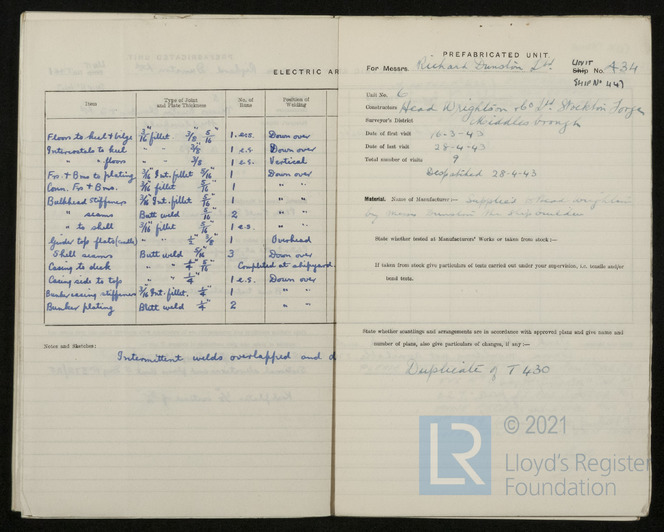 ELECTRIC AR
Item
Type of Joint and Plate Thickness
No. of Runs
Position of Welding
Floors to keel & bilge 3/16" fillet 3/8" 5/16" 1 e.s. Down over
Intercostals to keel " " 3/8" 1 e.s. Down over
" " floors " " 3/8 1 e.s. Vertical
Frs + Bms to plating 3/16" Int. fillet 5/16" 1 Down over
Conn. Frs + Bms. 3/16" fillet 5/16" 1 " "
Bulkhead stiffeners 3/16" Int. fillet 1/4" 1 " "
" seams Butt weld 5/16" 2 " "
" to shell 3/16" fillet 5/16" 1 e.s. " "
Girder top flats 1 Overhead
Shell seams Butt weld 5/16" 3 Down over
Casing to deck " " 1/4" 5/16" Completed at shipyard
Casing side to top " " 1/4" 1 e.s. Down over
Bunker casing stiffeners 3/16" Int. fillet. 1/4" 1 " "
Bunker plating Butt weld 1/4" 2 " "
Notes and Sketches:
Intermittent welds overlapped and d
PREFABRICATED UNIT.
For Messrs. Richard Dunston Ltd. UNIT Ship No. A 34
SHIP No 447
Unit No. 6
Constructors Head Wrightson & Co Ltd. Stockton Forge
Surveyor's District Middlesbrough
Date of first visit 16-3-43
Date of last visit 28-4-43
Total number of visits 9
Despatched 28-4-43
Material. Name of Manufacturer:— Supplied Head Wrightson
by Messrs Dunston the shipbuilders
State whether tested at Manufacturers' Works or taken from stock:—
If taken from stock give particulars of tests carried out under your supervision, i.e. tensile and/or
bend tests.
State whether scantlings and arrangements are in accordance with approved plans and give name and
number of plans, also give particulars of changes, if any:—
Duplicate of T 430
© 2021
LR
Lloyd's Register
Foundation